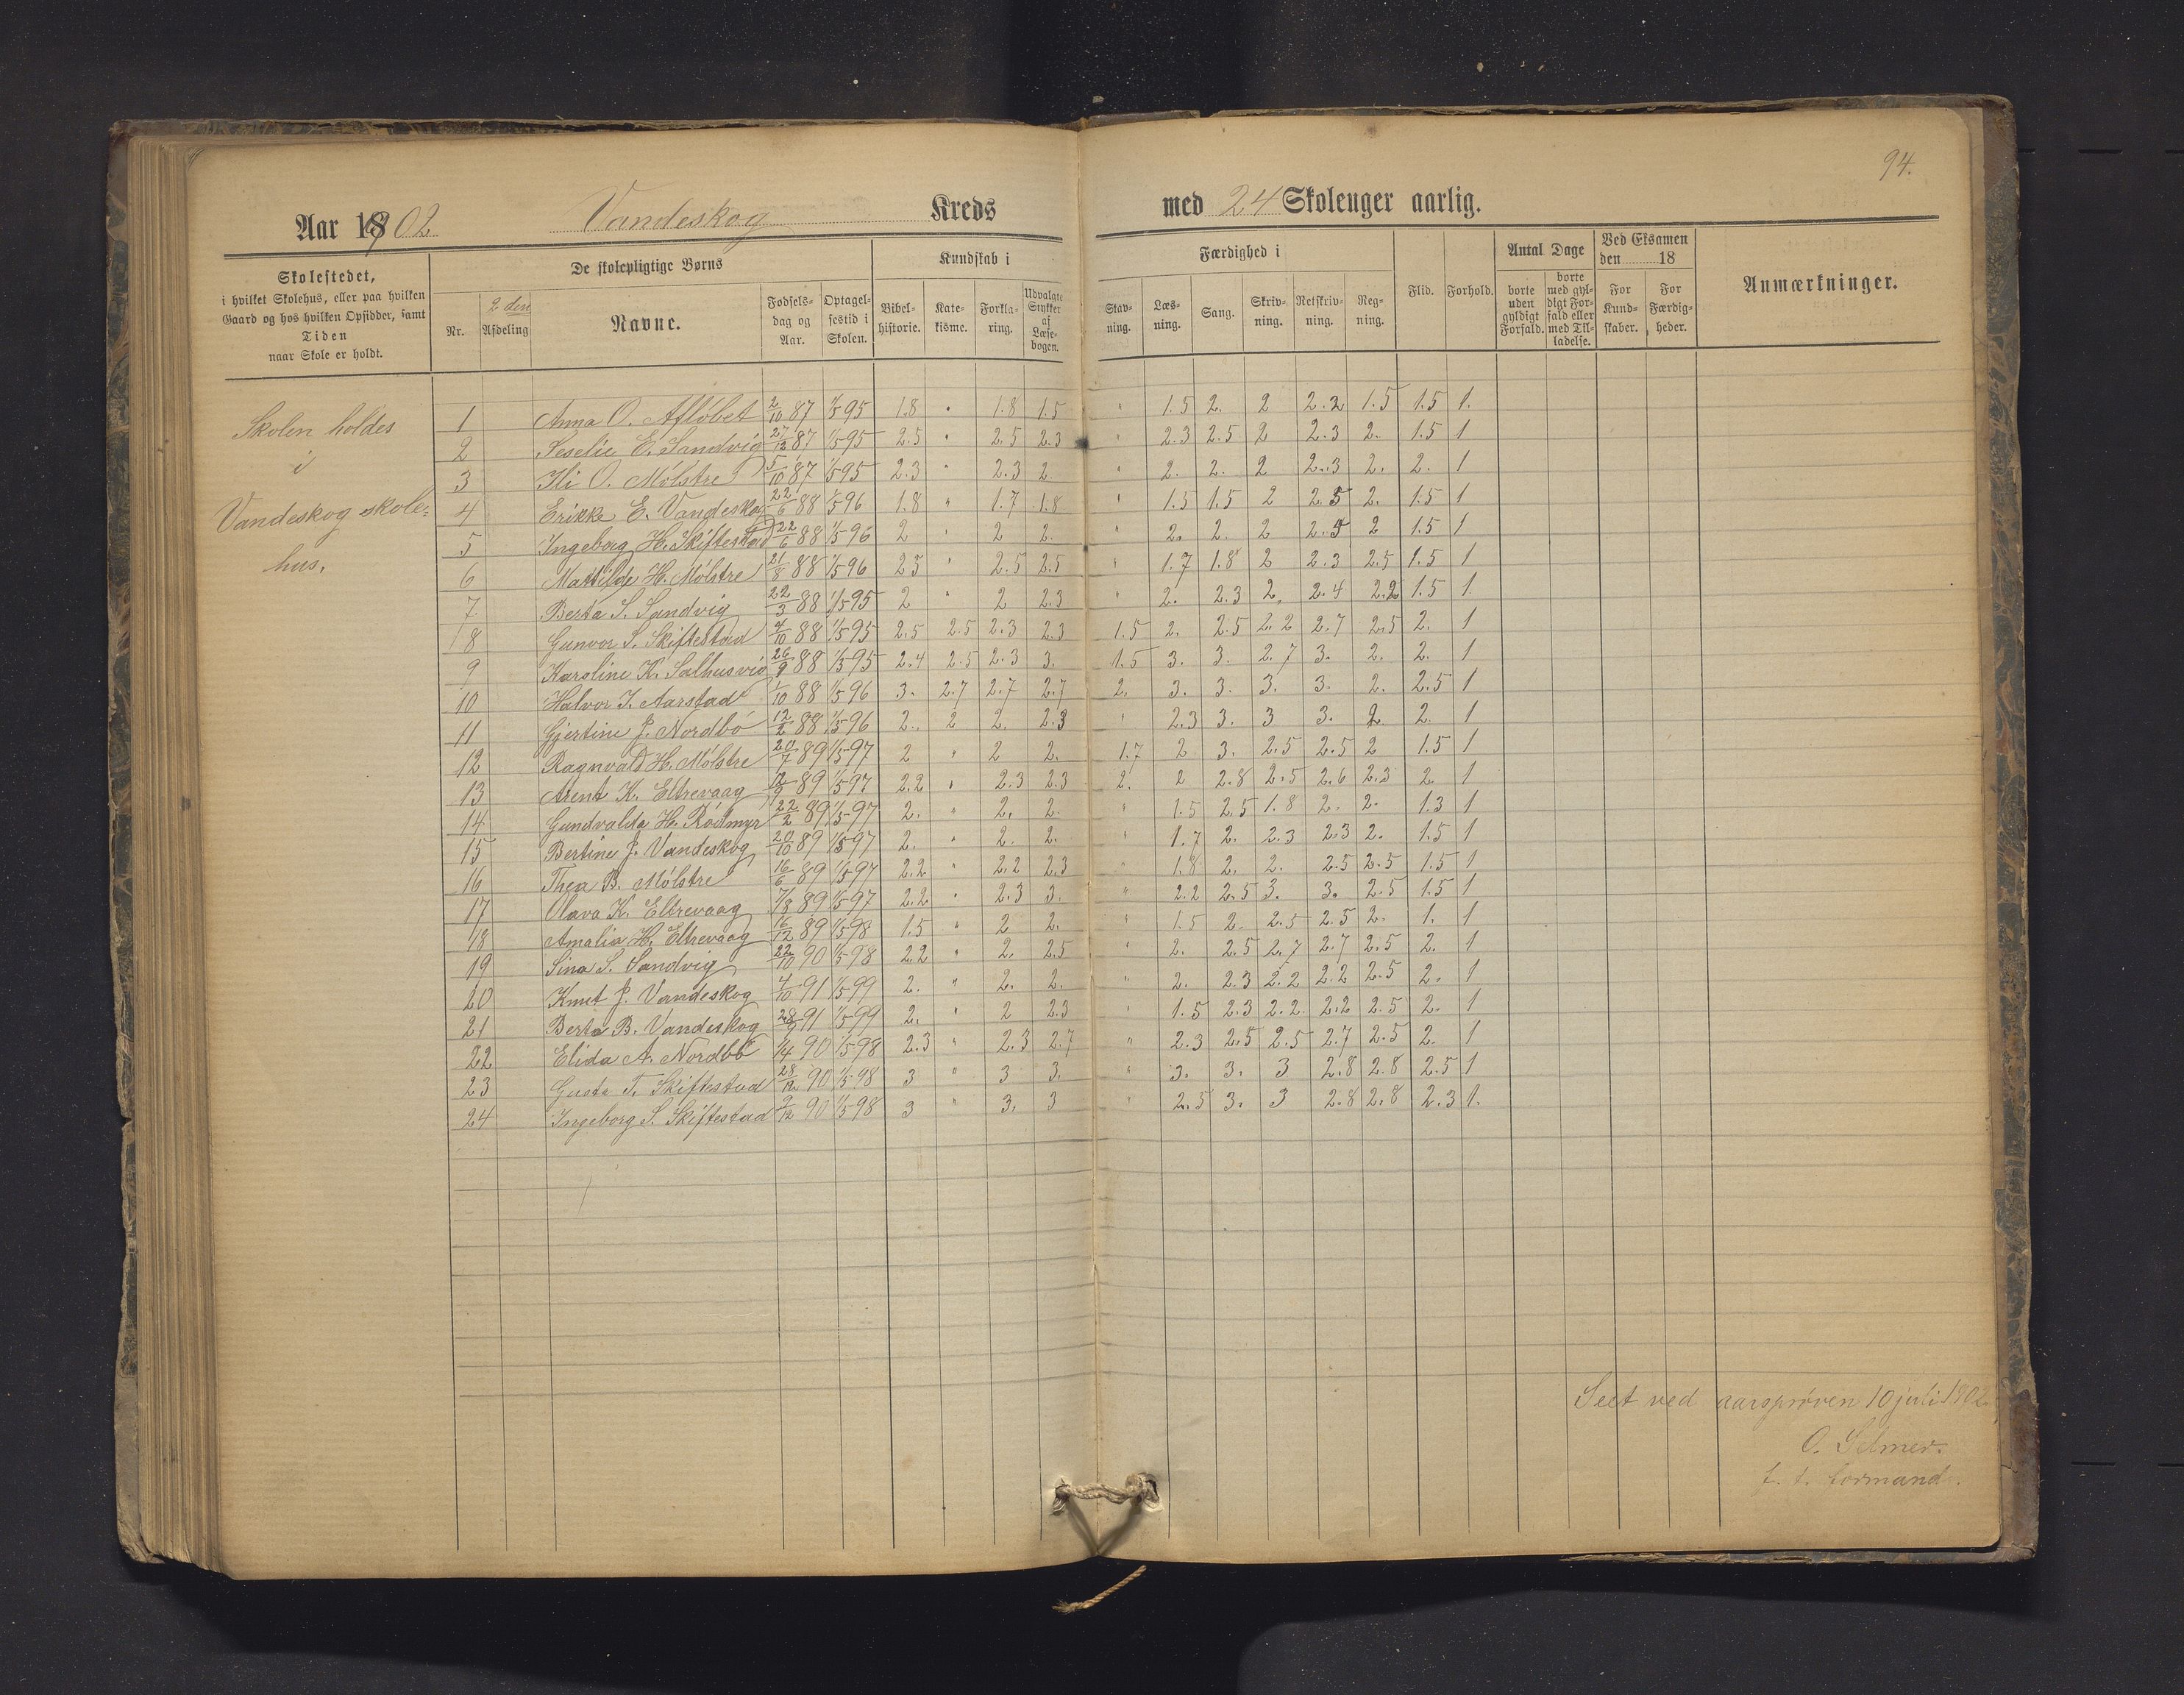 94.
Aar 1902 Vandeskog Kreds med 24 Skoleuger aarlig.
Skolestedet,
i hvilket Skolehus, eller paa hvilken
Gaard og hos hvilken Opsidder, samt
Tiden
naar Skole er holdt.
De skolepligtige Børns
Nr. 2 den Afdeling Navne. Fødsels-dag og Aar. Optagel-sestid i Skolen.
Kundskab i
Bibel-historie. Kate-kisme. Forkla-ring. Udvalgte Stykker af Læse-bogen.
Færdighed i
Stav-ning. Læs-ning. Sang. Skriv-ning. Retskriv-ning. Reg-ning. Flid. Forhold.
Antal Dage
borte uden gyldigt Forfald. borte med gyl-digt For-fald eller med Til-ladelse.
Ved Eksamen
den 18
For Kund-skaber. For Færdig-heder.
Anmærkninger.
Skolen holdes
i
Vandeskog skole-
hus.
1 Anna O. Afløbet 2/10 87 1/5 95 1.8 " 1.8 1.5 " 1.5 2. 2 2.2 1.5 1.5 1.
2 Seselie E. Sandvig 27/12 87 1/5 95 2.5 " 2.5 2.3 " 2.3 2.5 2 2.3 2. 1.5 1
3 Ili O. Mølstre 5/10 87 1/5 95 2.3 " 2.3 2. " 2. 2. 2 2.3 2. 2. 1
4 Erikke E. Vandeskog 22/6 88 1/5 96 1.8 " 1.7 1.8 " 1.5 1.5 2 2.5 2. 1.5 1
5 Ingeborg H. Skiftestad 22/6 88 1/5 96 2 " 2 2. " 2. 2. 2 2.5 2 1.5 1
6 Mathilde H. Mølstre 21/8 88 1/5 96 2.5 " 2.5 2.5 " 1.7 1.8 2 2.3 2.5 1.5 1
7 Berta S. Sandvig 22/3 88 1/5 95 2 " 2 2.3 " 2. 2.3 2. 2.4 2.2 1.5 1.
8 Gunvor S. Skiftestad 4/10 88 1/5 95 2.5 2.5 2.3 2.3 1.5 2. 2.5 2.2 2.7 2.5 2. 1
9 Karoline K. Salhusvig 26/9 88 1/5 95 2.4 2.5 2.3 3. 1.5 3. 3. 2.7 3. 2. 2. 1
10 Halvor I. Aarstad 1/10 88 1/5 96 3. 2.7 2.7 2.7 2. 3. 3. 3. 3. 2. 2.5 1
11 Gjertine J. Nordbø 12/2 88 1/5 96 2. 2 2. 2.3 " 2.3 3. 3 3. 2. 2. 1
12 Ragnvald H. Mølstre 20/7 89 1/5 97 2 " 2 2. 1.7 2 3. 2.5 2.5 2 1.5 1
13 Arent K. Eltrevaag 12/9 89 1/5 97 2.2 " 2.3 2.3 2. 2 2.8 2.5 2.6 2.3 2. 1
14 Gundvalda H. Rødmyr 22/2 89 1/5 97 2. " 2. 2. " 1.5 2.5 1.8 2. 2. 1.3 1
15 Bertine J. Vandeskog 20/10 89 1/5 97 2. " 2. 2. " 1.7 2. 2.3 2.3 2. 1.5 1
16 Thea B. Mølstre 16/6 89 1/5 97 2.2 " 2.2 2.3 " 1.8 2. 2. 2.5 2.5 1.5 1
17 Olava K. Eltrevaag 7/8 89 1/5 97 2.2 " 2.3 3. " 2.2 2.5 3. 3. 2.5 1.5 1
18 Amalia H. Eltrevaag 16/12 89 1/5 98 1.5 " 2 2. " 1.5 2. 2.5 2.5 2. 1. 1
19 Sina S. Sandvig 22/10 90 1/5 98 2.2 " 2. 2.5 " 2. 2.5 2.7 2.7 2.5 2. 1
20 Knut J. Vandeskog 4/10 91 1/5 99 2. " 2. 2. " 2. 2.3 2.2 2.2 2.5 2. 1
21 Berta B. Vandeskog 28/9 91 1/5 99 2. " 2 2.3 " 1.5 2.3 2.2 2.2 2.5 2. 1
22 Elida A. Nordbø 1/4 90 1/5 98 2.3 " 2.3 2.7 " 2.3 2.5 2.5 2.7 2.5 2. 1
23 Gusta T. Skiftestad 28/12 90 1/5 98 3 " 3 3. " 3. 3. 3 2.8 2.8 2.5 1
24 Ingeborg S. Skiftestad 9/12 90 1/5 98 3 " 3. 3 " 2.5 3. 3 2.8 2.8 2.3 1.
Seet ved aarsprøven 10 juli 1902
O. Selmer.
f. t. formand.